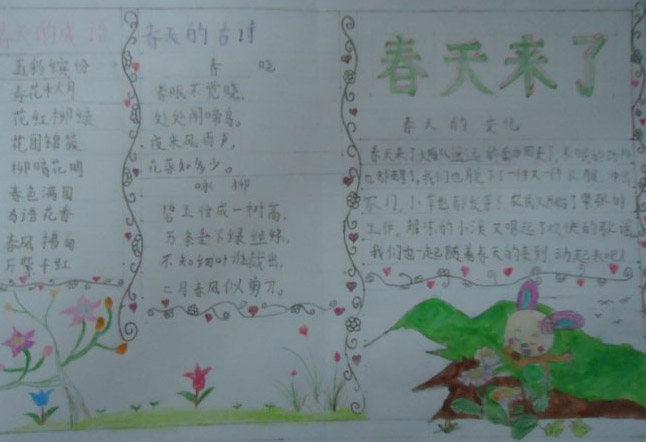 春天的成语
五彩缤纷
春花秋月
花红柳绿
花团锦簇
柳暗花明
春色满园
鸟语花香
春风拂面
万紫千红
春天的古诗
春 晓
春眠不觉晓,
处处闻啼鸟。
夜来风雨声,
花落知多少。
咏 柳
碧玉妆成一树高,
万条垂下绿丝绦。
不知细叶谁裁出,
二月春风似剪刀。
春天来了
春天的变化
春天来了
我们也脱下了一件又一件
小草也都发芽了
工作,解冻的小溪又唱起了欢快的歌谣
我们也一起随着春天的来到,动起来吧!